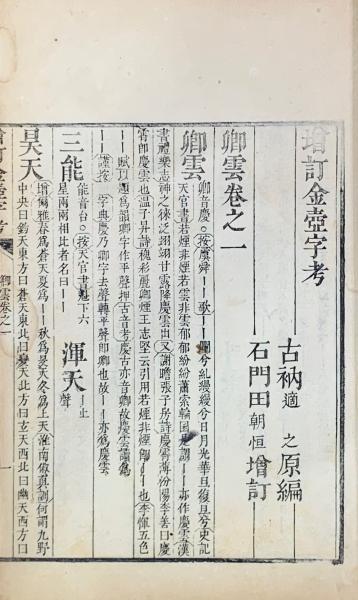 增訂金壺字考
古衲適之原編
石門田朝恒增訂
卿雲卷之一
卿雲
卿音慶○按虞舜｜｜歌｜｜爛兮糺縵縵兮日月光華旦復旦兮史記
天官書若煙非煙若雲非雲郁郁紛紛蕭索輪囷是謂｜｜亦作慶雲漢
書禮樂志神之徠泛翊翊甘露降慶雲出又謝瞻張子房詩慶霄薄汾陽李善曰慶
霄即慶雲也溫子昇詩穐彩麗卿煙王志堅云引用若煙非煙卿｜｜也李惲五色
｜｜賦以題為韻卿字作平聲押古音考慶古亦音卿故慶雲謂為
｜｜謹按 字典慶乃卿字去聲轉平聲即卿也故｜｜亦為慶雲
三能
能音台○按天官書魁下六
星兩兩相比者名曰｜｜
渾天
｜止
聲
昊天
增爾雅春為蒼天夏為｜｜秋為旻天冬為上天淮南俶真訓何謂九野
中央曰鈞天東方曰蒼天東北曰變天北方曰玄天西北曰幽天西方曰
增訂金壺字考
卿雲卷之一
一